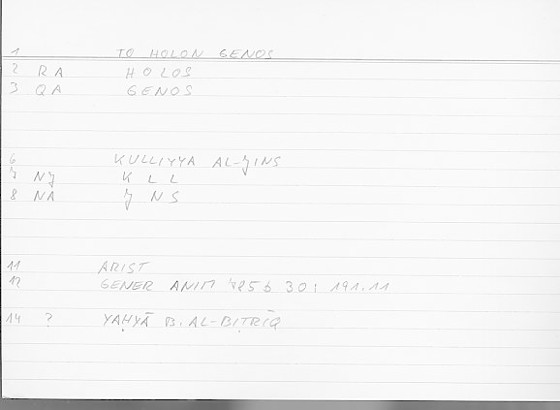 1 TO HOLON GENOS
2 RA HOLOS
3 QA GENOS
6 KULLIYYA AL-ǧINS
7 Nǧ K L L
8 NA ǧ N S
11 ARIST
12 GENER ANIM 725 b 30; 191.11
14 ? YAḤYĀ B. AL-BIṬRĪQ